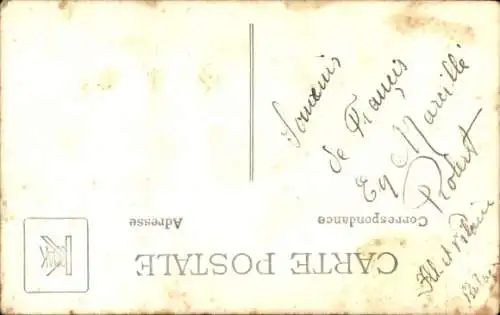 CARTE POSTALE
Correspondance
Adresse
Souvenir
de Français
Eq Marcillé
Robert
Ille et Vilaine